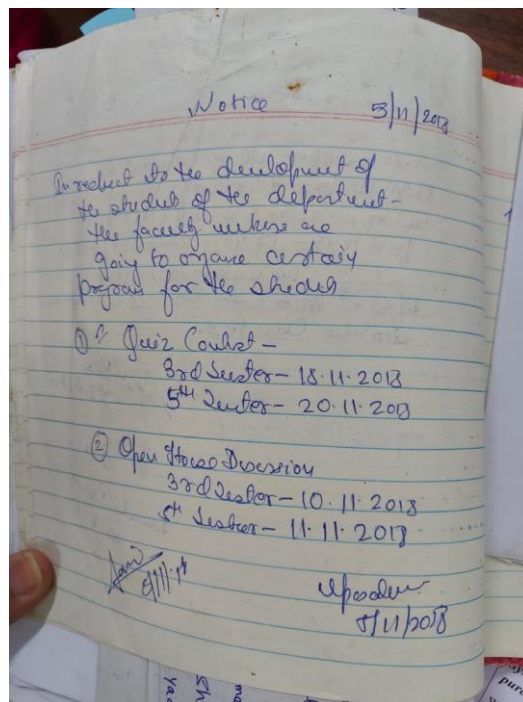 Notice 5/11/2018
In respect to the development of
the students of the department-
the faculty members are
going to organise certain
program for the students
① Quiz Contest -
3rd Semester - 18.11.2018
5th Semester - 20.11.2018
② Open House Discussion
3rd Semester - 10.11.2018
5th Semester - 11.11.2018
5/11/2018